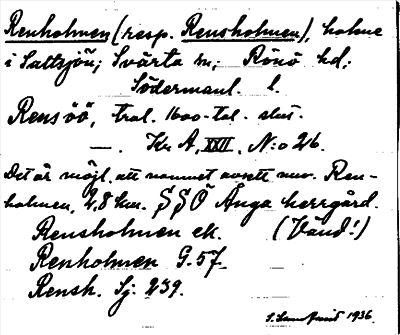 Renholmen (resp. Rensholmen), holme
i Saltsjön; Svärta sn, Rönö hd,
Södermanl. l.
Rensöö, trol. 1600-tal. slut.
—. Kr A, XXII, N:o 26.
Det är möjl. att namnet avsett nuv. Ren-
holmen, 4,8 km. SSÖ Ånga herrgård.
Rensholmen ek. (Vänd!)
Renholmen G.57
Rensh. Sj: 239.
1936